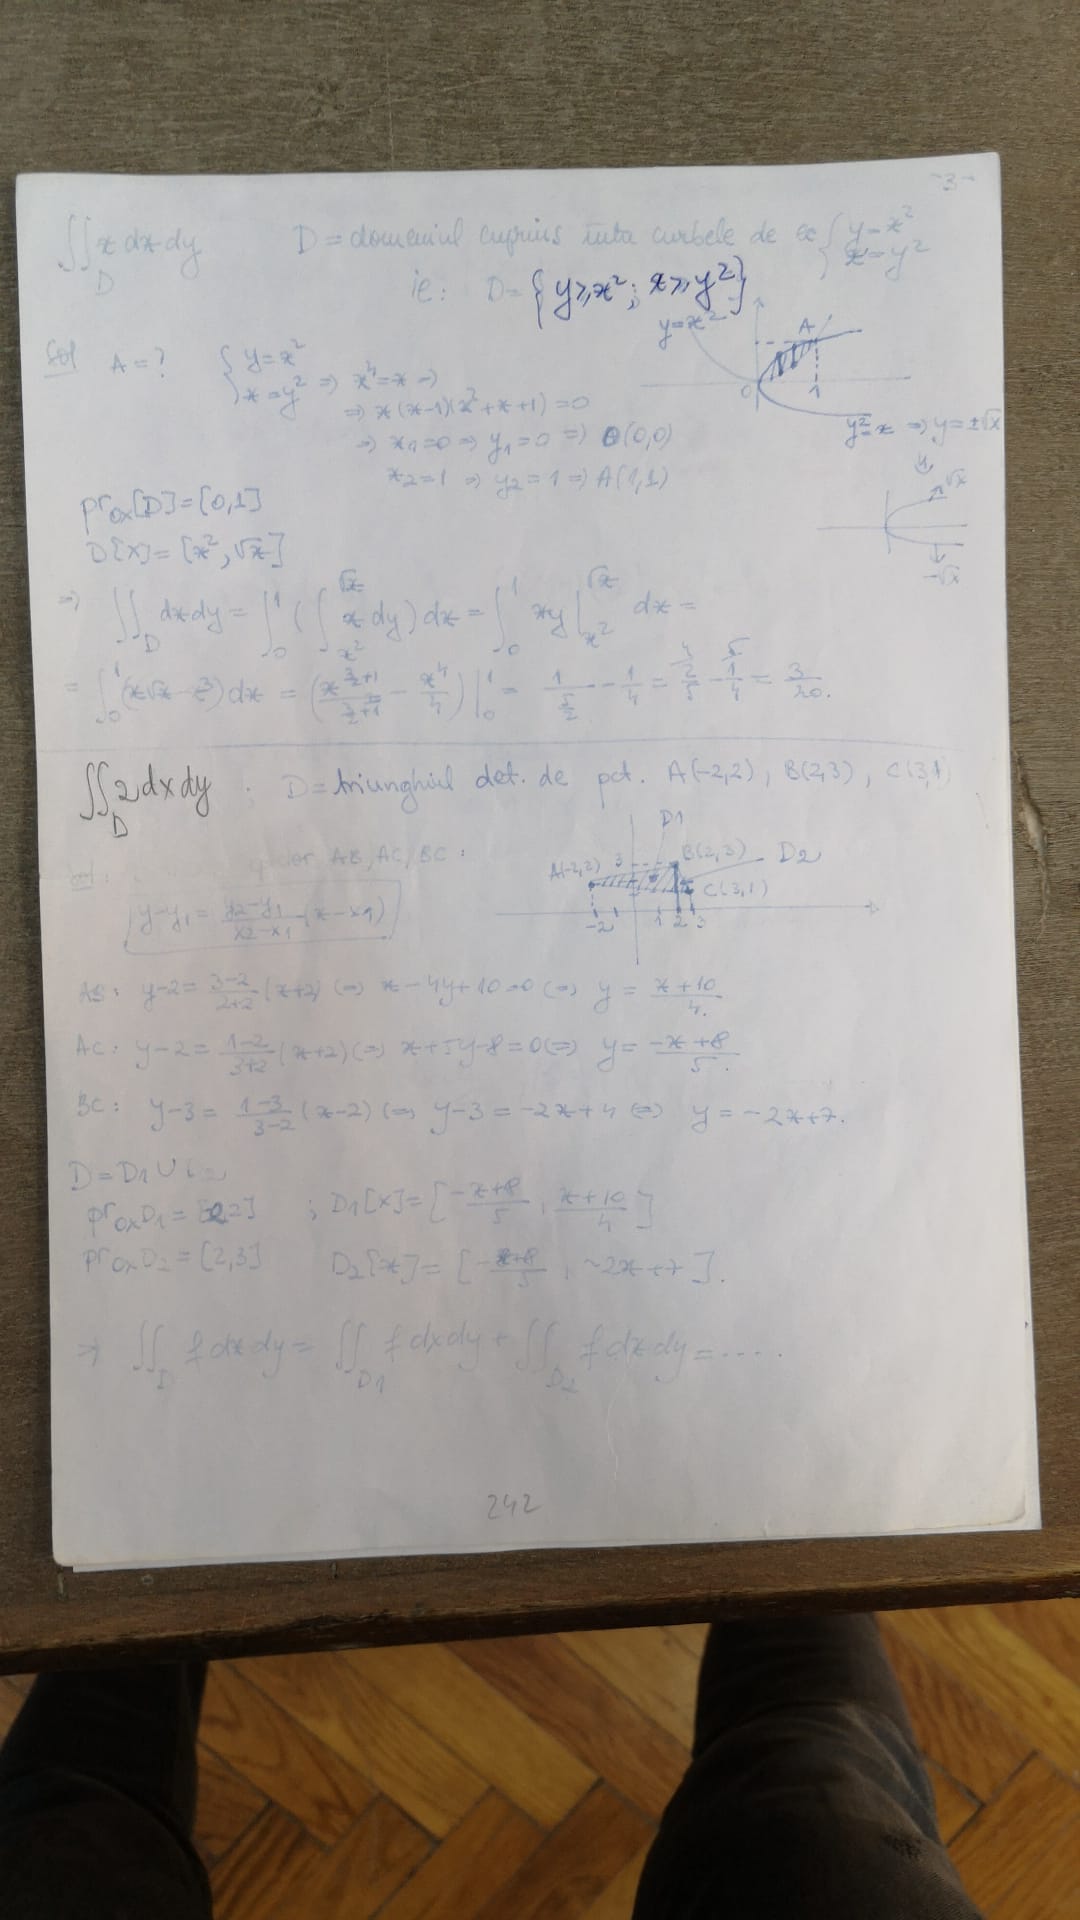 -3-
∬_D x dx dy   D = domeniul cuprins între curbele de ec { y = x²
x = y²
ie: D = { y ≥ x² ; x ≥ y² }
y = x²   A
Sol   A = ?   { y = x²
x = y² ⇒ x⁴ = x ⇒
O   1
⇒ x(x-1)(x²+x+1) = 0
y² = x ⇒ y = ±√x
⇒ x₁ = 0 ⇒ y₁ = 0 ⇒ O(0,0)
x₂ = 1 ⇒ y₂ = 1 ⇒ A(1,1)
√x
-√x
pr_ox[D] = [0,1]
D[x] = [x², √x]
⇒ ∬_D dx dy = ∫₀¹ ( ∫_{x²}^{√x} x dy ) dx = ∫₀¹ xy |_{x²}^{√x} dx =
= ∫₀¹ (x√x - x³) dx = ( x^{3/2+1} / (3/2+1) - x⁴/4 ) |₀¹ = 1/(5/2) - 1/4 = ⁴⁾2/5 - ⁵⁾1/4 = 3/20.
∬_D 2 dx dy ; D = triunghiul det. de pct. A(-2,2), B(2,3), C(3,1)
D1
A(-2,2)   3   B(2,3)   D2
C(3,1)
-2   1   2   3
AB, AC, BC :
y - y₁ = (y₂ - y₁)/(x₂ - x₁) (x - x₁)
AB: y - 2 = (3-2)/(2+2) (x+2) ⇔ x - 4y + 10 = 0 ⇔ y = (x+10)/4.
AC: y - 2 = (1-2)/(3+2) (x+2) ⇔ x + 5y - 8 = 0 ⇔ y = (-x+8)/5.
BC: y - 3 = (1-3)/(3-2) (x-2) ⇔ y - 3 = -2x + 4 ⇔ y = -2x + 7.
D = D₁ ∪
pr_ox D₁ = [   2] ; D₁[x] = [ (-x+8)/5 , (x+10)/4 ]
pr_ox D₂ = [2,3]   D₂[x] = [ (-x+8)/5 , -2x+7 ].
⇒ ∬_D f dx dy = ∬_D1 f dx dy + ∬_D2 f dx dy = ....
242